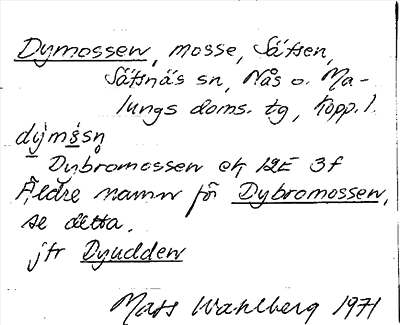 Dymossen, mosse, Sätsen,
Sätsnäs sn, Nås o. Ma-
lungs doms. tg, Kopp. l.
dỳmåsn̥
Dybromossen ek 12E 3f
Äldre namn för Dybromossen,
se detta.
jfr Dyudden
Mats Wahlberg 1971